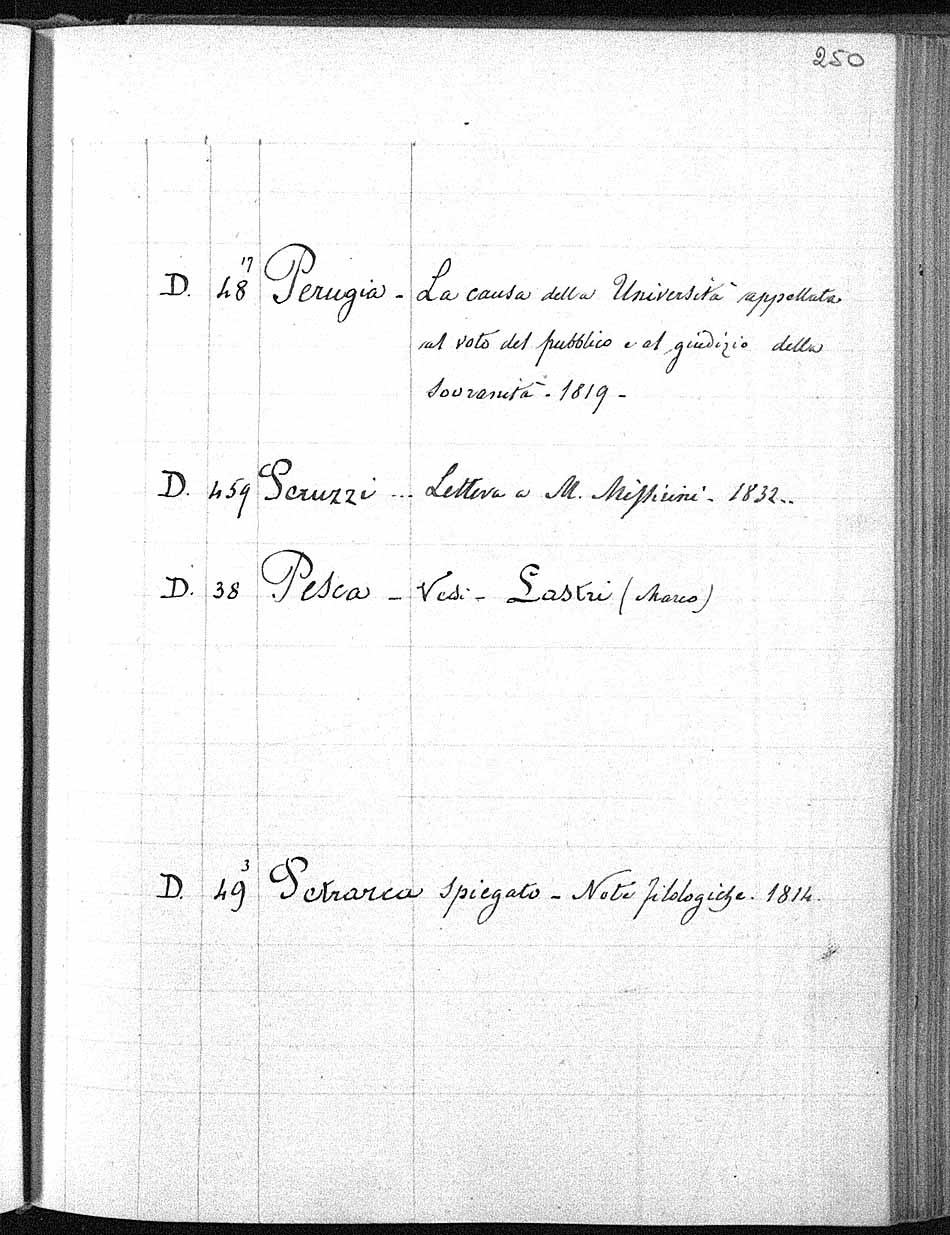 250
D. 48 17 Perugia - La causa della Università appellata
al voto del pubblico e al giudizio della
Sovranità - 1819 -
D. 459 Peruzzi ... Lettera a M. Missirini - 1832 ..
D. 38 Pesca - Vedi - Lastri (Marco)
D. 49 3 Petrarca Spiegato - Note filologiche. 1814.